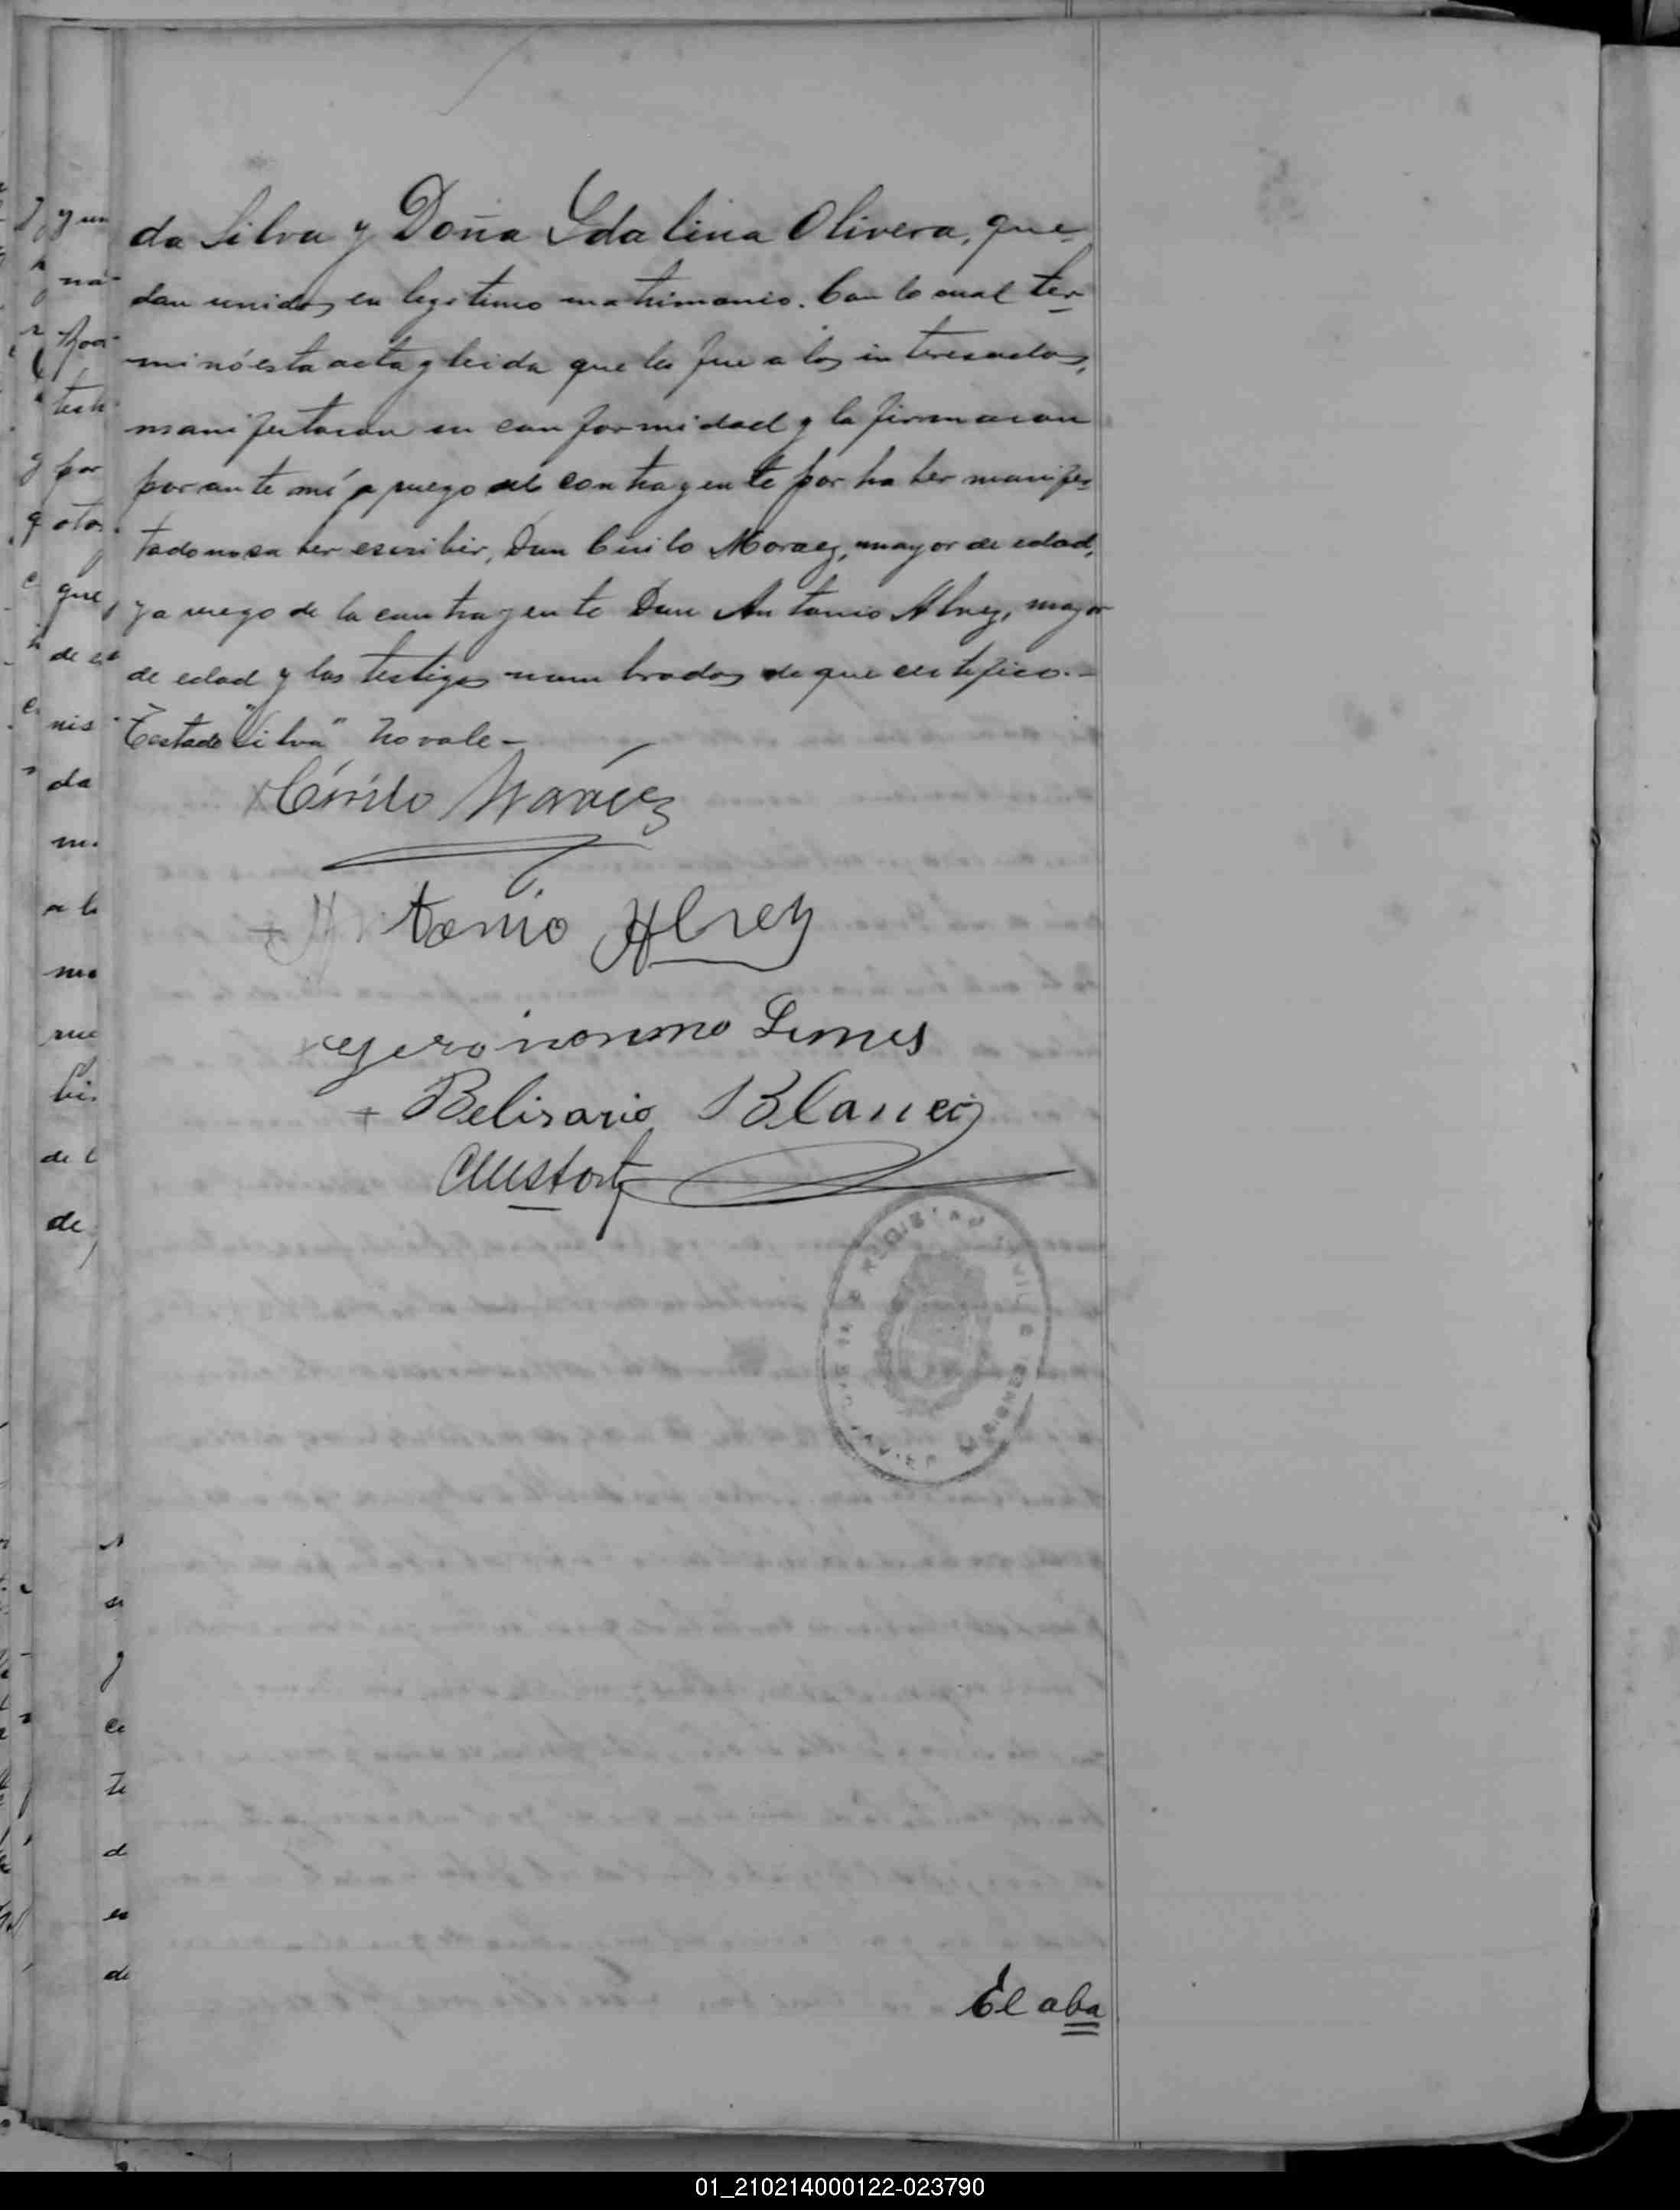 da Silva y Doña Ydalina Olivera, que-
dan unidos en legitimo matrimonio. Con lo cual ter-
minó esta acta y leida que les fue a los interesados,
manifestaron su conformidad y la firmaron
por ante mí, a ruego del contrayente por haber manifes-
tado no saber escribir, Don Cirilo Moraez, mayor de edad,
y a ruego de la contrayente Don Antonio Alvez, mayor
de edad y los testigos nombrados de que certifico.-
Testado "Silva" No vale-
Cirilo
Antonio
Lemes
Belisario Blanco
REGISTRO CIVIL
JAVIER MISIONES
El aba
y un
ná-
test
y por
que
de es
nis
da
a la
me
rue
de
te
en
de
01_210214000122-023790